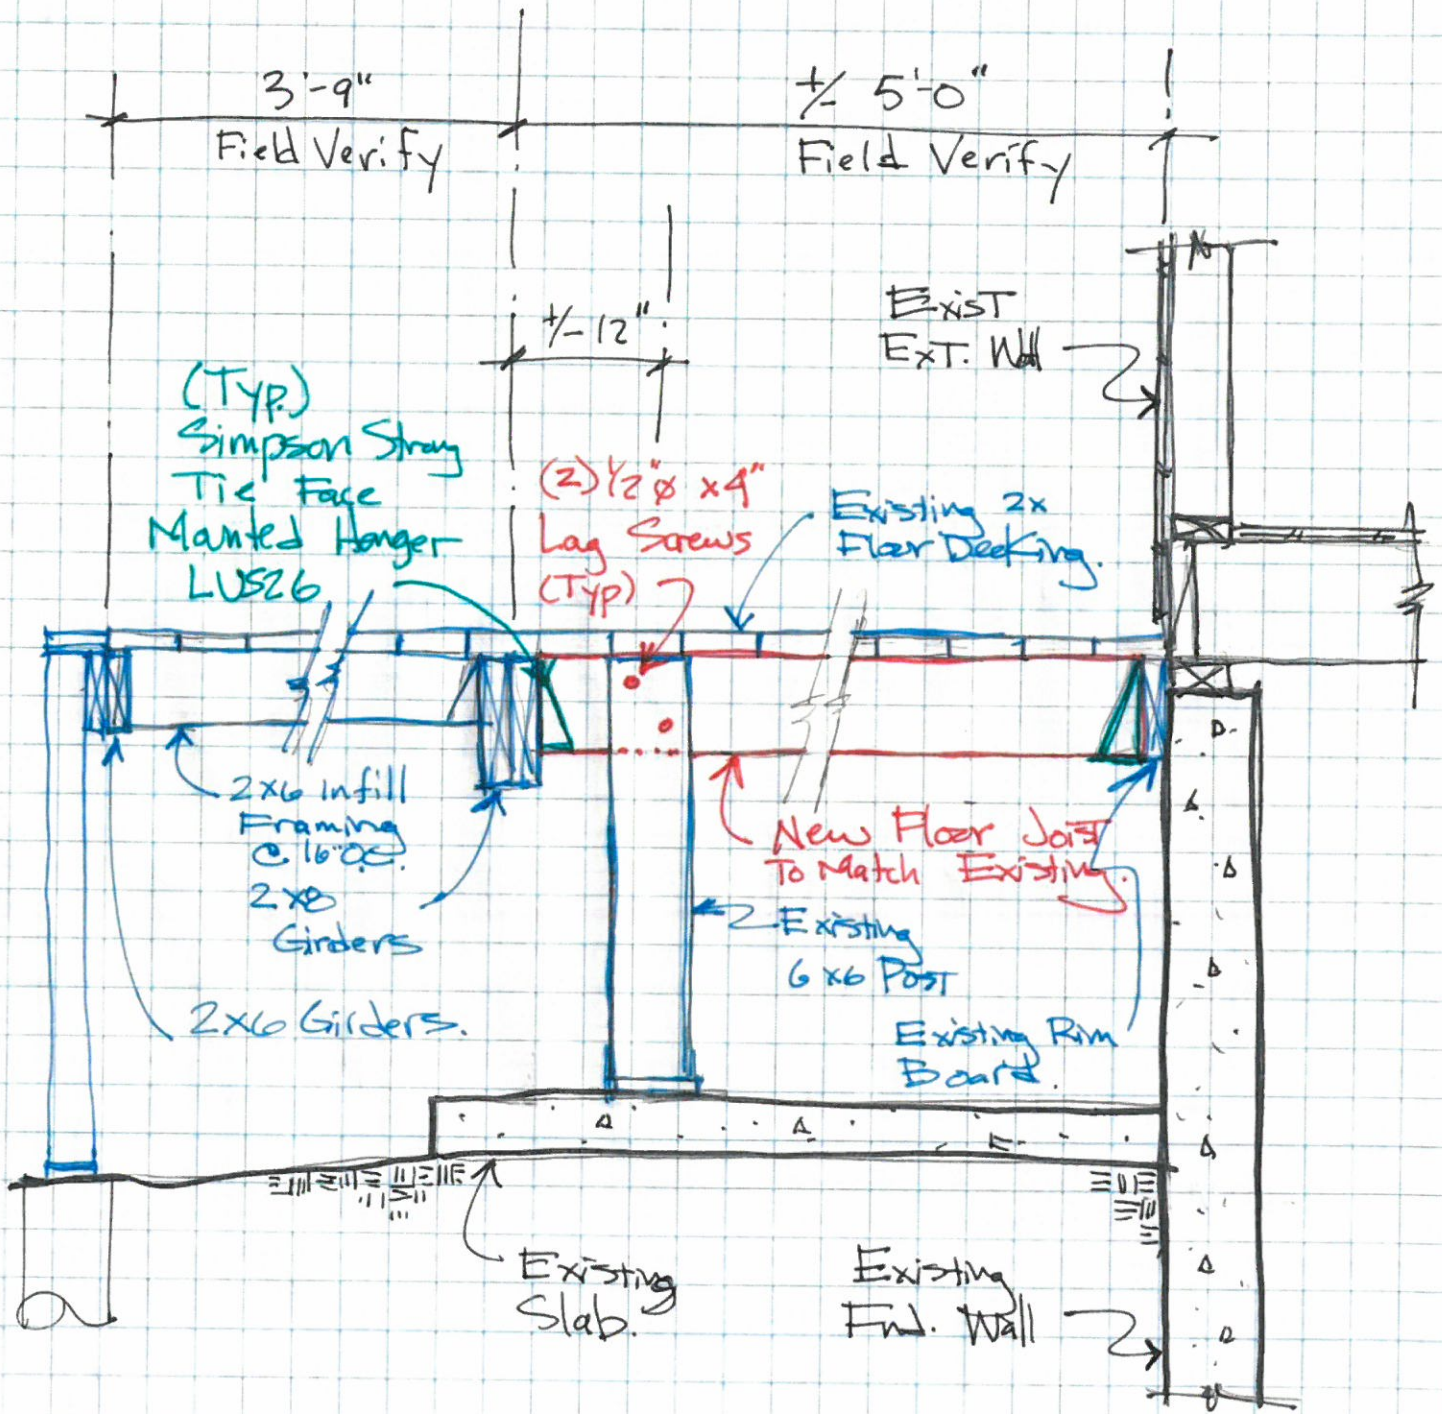 3'-9"
Field Verify
+/- 5'-0"
Field Verify
+/- 12"
Exist
Ext. Wall
(Typ.)
Simpson Strong
Tie Face
Mounted Hanger
LUS26
(2) 1/2"ø x4"
Lag Screws
(Typ)
Existing 2x
Floor Decking.
2x6 Infill
Framing
@ 16" O.C.
2x8
Girders
2x6 Girders.
New Floor Joist
To Match Existing.
Existing
6x6 Post
Existing Rim
Board.
Existing
Slab.
Existing
Fnd. Wall